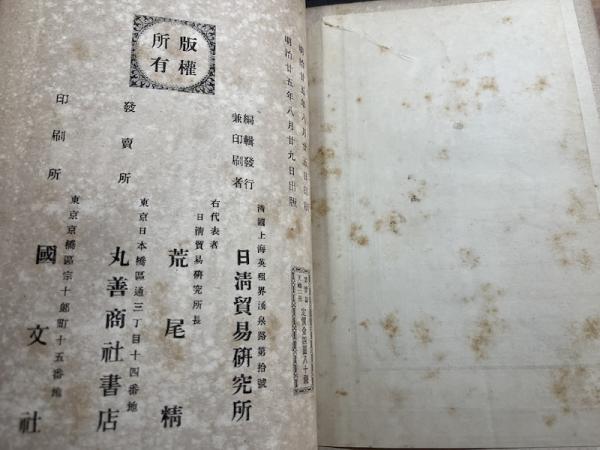 明治廿五年八月廿五日印刷
明治廿五年八月廿九日出版
版權
所有
定價金四圓八十錢
清國上海英租界溪泉路第拾號
編輯發行
兼印刷者
日清貿易硏究所
右代表者
日清貿易硏究所長
荒尾精
東京日本橋區通三丁目十四番地
發賣所
丸善商社書店
東京京橋區宗十郞町十五番地
印刷所
國文社